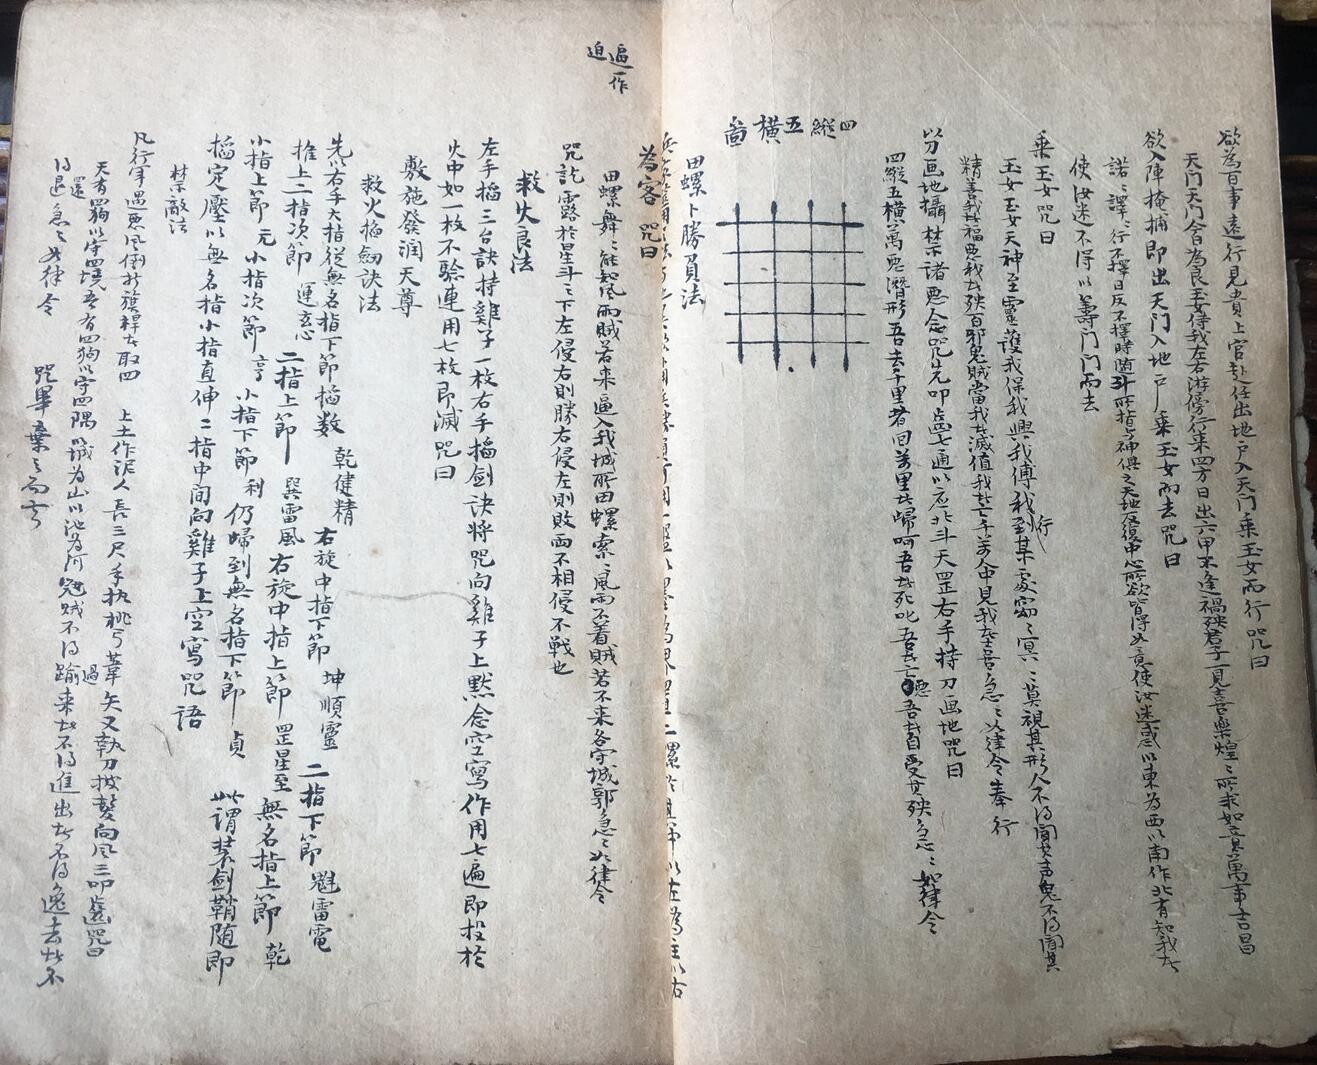 欲為百事遠行見貴上官赴任出地戶入天門乘玉女而行咒曰
天門天門今為良玉女侍我左右游傍行來四方日出六甲不逢禍殃君子一見喜樂煌〻所求如意萬事吉昌
欲入陣掩捕即出天門入地戶乘玉女而去咒曰
諾〻譯〻行不擇日反不擇時隨斗所指与神俱之天地反復中心所欲皆得如意使汝迷惑以東為西以南作北有知我者
使汝迷不得以籌門門而去
乘玉女咒曰
玉女玉女天神至靈護我保我與我傅我行到某處窈〻冥〻莫視其形人不得聞其声鬼不得聞其
精善我者福惡我者殃百邪鬼賊當我者滅值我者亡千萬人中見我者喜急〻如律令奉行
以分画地攝禁諸惡念咒先叩齒七通以應北斗天罡右手持刀画地咒曰
四縱五橫萬惡潛形吾去千里者回萬里者歸呵吾者死叱吾者亡吾者自受其殃急〻如律令
四縱五橫畣
田螺卜勝負法
為客 咒曰
田螺舞〻能起風雨賊若來逼入我城所田螺索〻風雨不着賊若不來各守城郭急〻如律令
遍一作迫
咒訖露於星斗之下左侵右則勝右侵左則敗而不相侵不戰也
救火良法
左手搯三台訣持雞子一枚右手搯劍訣將咒向雞子上默念空寫作用七遍即投於
火中如一枚不驗連用七枚即滅咒曰
敷施發潤天尊
救火搯劍訣法
先以右手大指從無名指下節搯数 乾健精 右旋中指下節 坤順靈 二指下節 魁雷電
推上二指次節 運玄心 二指上節 巽雷風 右旋中指上節 罡星至 無名指上節 乾
小指上節 元 小指次節 亨 小指下節 利 仍歸到無名指下節 貞 此謂裝劍鞘随即
搯定壓以無名指小指直伸二指中間向雞子上空寫咒語
禁敵法
凡行軍遇惡風倒折旗桿去取四 上土作泥人長三尺手执桃弓葦矢又執刀披髮向風三叩齒咒曰
天有四狗以守四境吾有四狗以守四隅以城為山以池為河冦賊不得踰過來者不得進出者不得逸去者不
得退還急〻如律令 咒畢棄之而